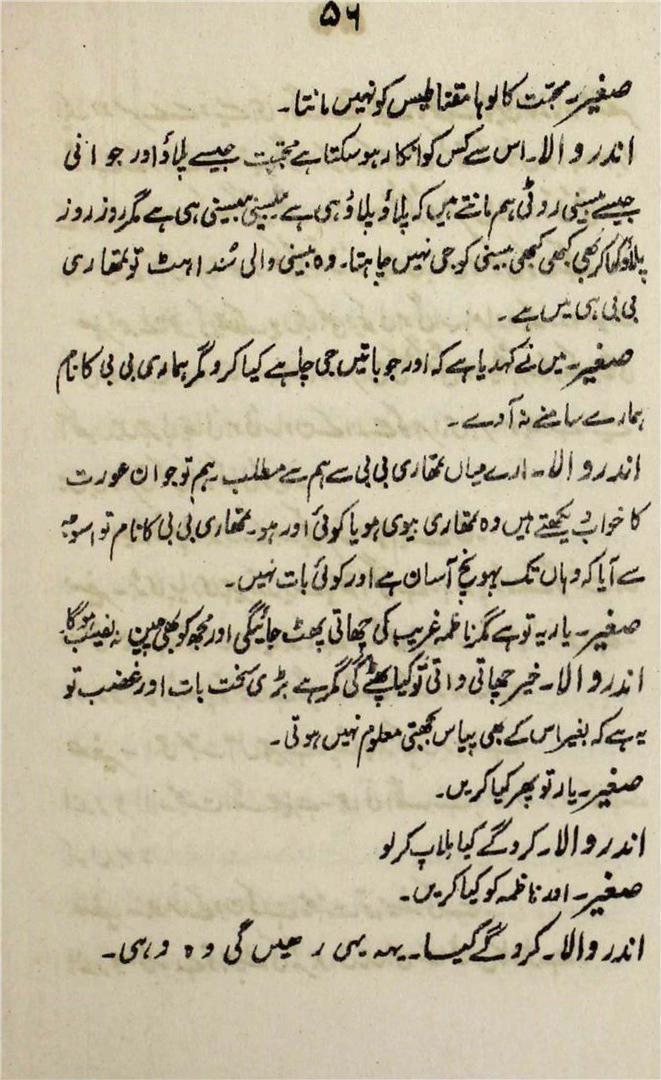 ۵۶
صغیر۔ محبت کا لوہا مقناطیس کو نہیں مانتا۔
اندر والا۔ اس سے کس کو انکار ہو سکتا ہے محبت جیسے پلاؤ اور جوانی
جیسے بیسنی روٹی ہم مانتے ہیں کہ پلاؤ پلاؤ ہی ہے بیسنی بیسنی ہی ہے مگر روز روز
پلاؤ کھا کر بھی کبھی کبھی بیسنی کو جی نہیں چاہتا۔ وہ بیسنی والی سُنداہٹ تو تمھاری
بی بی ہی میں ہے۔
صغیر۔ میں نے کہدیا ہے کہ اور جو باتیں جی چاہے کیا کرو مگر ہماری بی بی کا نام
ہمارے سامنے نہ آوے۔
اندر والا۔ ارے میاں تمھاری بی بی سے ہم سے مطلب ہم تو جوان عورت
کا خواب دیکھتے ہیں وہ تمھاری بیوی ہو یا کوئی اور ہو۔ تمھاری بی بی کا نام تو اسوجہ
سے آیا کہ وہاں تک پہونچ آسان ہے اور کوئی بات نہیں۔
صغیر۔ یار یہ تو ہے مگر ناظمہ غریب کی چھاتی پھٹ جائیگی اور مجھ کو بھی چین نہ نصیب ہوگا۔
اندر والا۔ خیر چھاتی واتی تو کیا پھٹے گی مگر ہے بڑی سخت بات اور غضب تو
یہ ہے کہ بغیر اس کے بھی پیاس بجھتی معلوم نہیں ہوتی۔
صغیر۔ یار تو پھر کیا کریں۔
اندر والا۔ کرو گے کیا ملاپ کر لو
صغیر۔ اور ناظمہ کو کیا کریں۔
اندر والا۔ کرو گے کیا۔ یہہ یہی رہیں گی وہ وہی۔